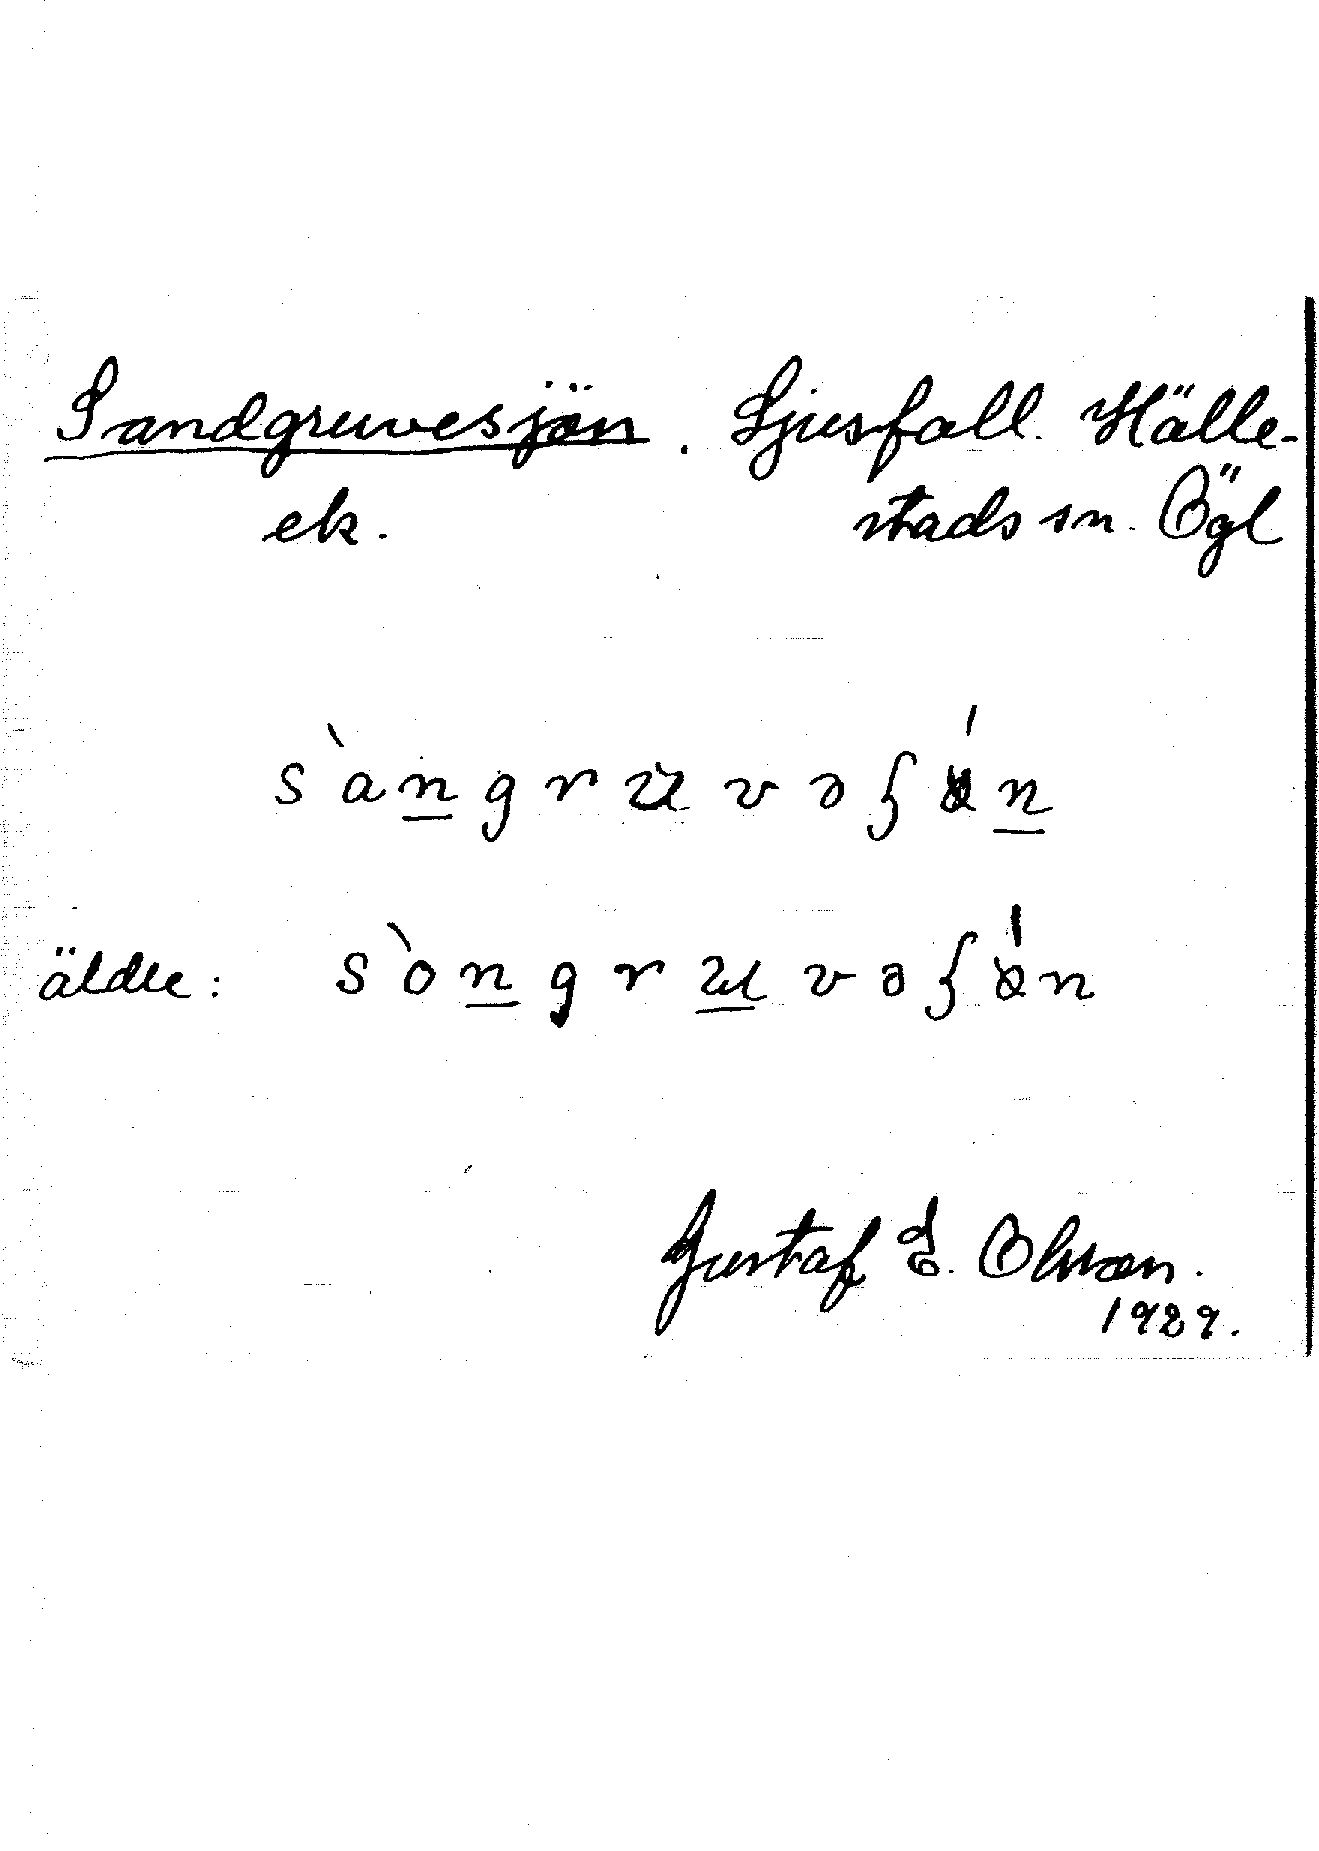 Sandgruvesjön. Ljusfall. Hälle-
ek. stads sn. Ögl
s`angruvəʃø´n
äldre: s`ongruvəʃø´n
Gustaf E. Olsson.
1929.